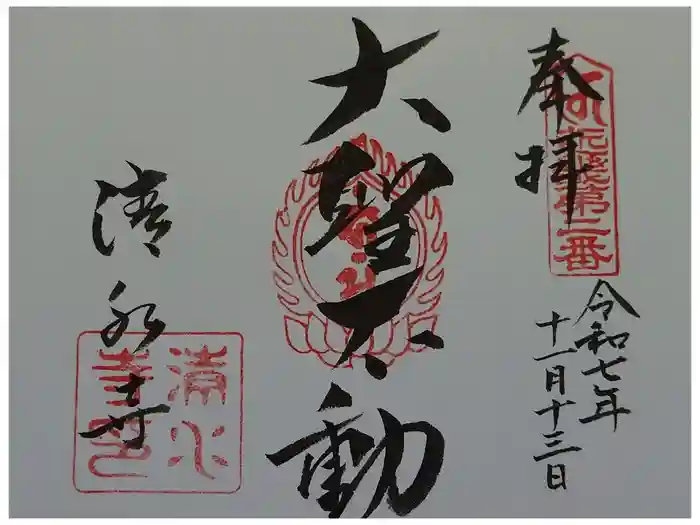 奉拝
令和七年
十一月十三日
大聖不動
清水寺
第二番
清水
寺印